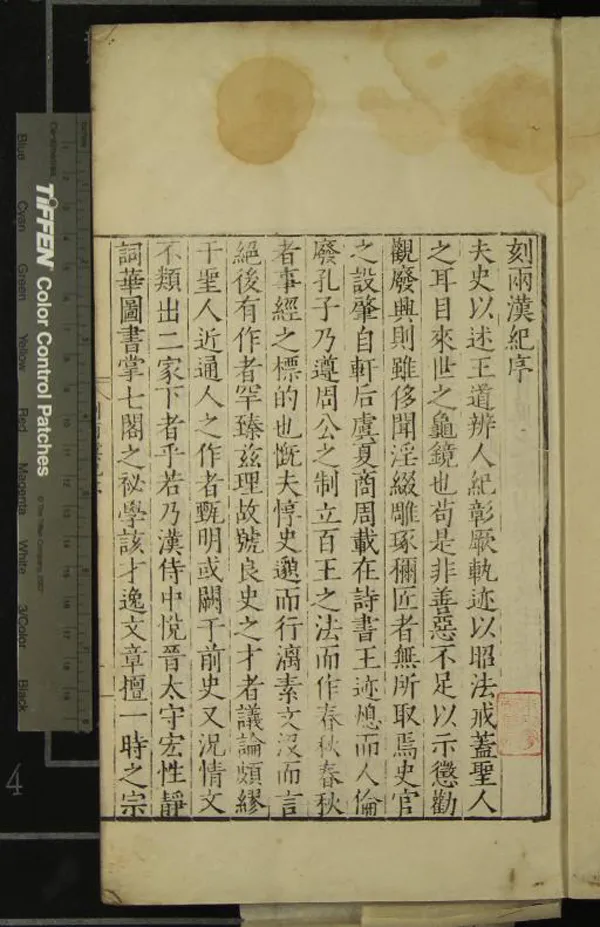 刻兩漢紀序
夫史以述王道辨人紀彰厥軌迹以昭法戒蓋聖人
之耳目來世之龜鏡也苟是非善惡不足以示懲勸
觀廢興則雖侈聞淫綴雕琢彌匠者無所取焉史官
之設肇自軒后虞夏商周載在詩書王迹熄而人倫
廢孔子乃遵周公之制立百王之法而作春秋春秋
者事經之標的也慨夫惇史邈而行漓素文沒而言
絕後有作者罕臻茲理故號良史之才者議論頗繆
于聖人近通人之作者甄明或闕于前史又況情文
不類出二家下者乎若乃漢侍中悅晉太守宏性靜
詞華圖書掌七閣之祕學該才逸文章擅一時之宗
TIFFEN Color Control Patches
© The Tiffen Company, 2007
Centimetres
Inches
Blue Cyan Green Yellow Red Magenta White 3/Color Black
4